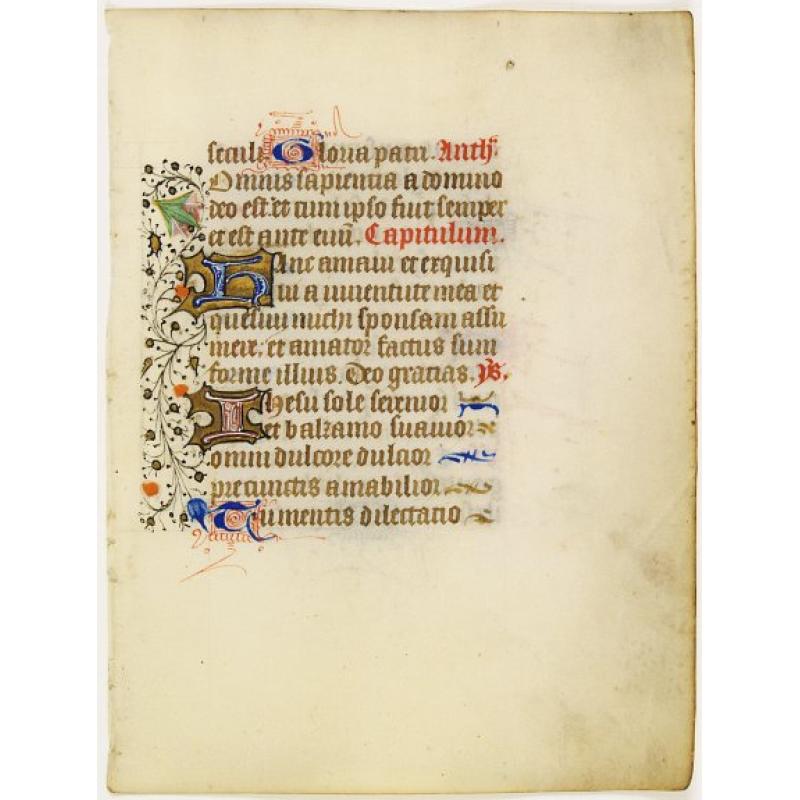 seculi Gloria patri. Anth.
Omnis sapientia a domino
deo est. et cum ipso fuit semper
et est ante euū. Capitulum.
Hanc amaui et exquisi
ui a iuuentute mea et
quesiui michi sponsam assu
mere. et amator factus sum
forme illius. Deo gracias. ys.
Ihesu sole serenior
et balzamo suauior
omni dulcore dulcior
pre cunctis amabilior
Tu mentis dilectatio